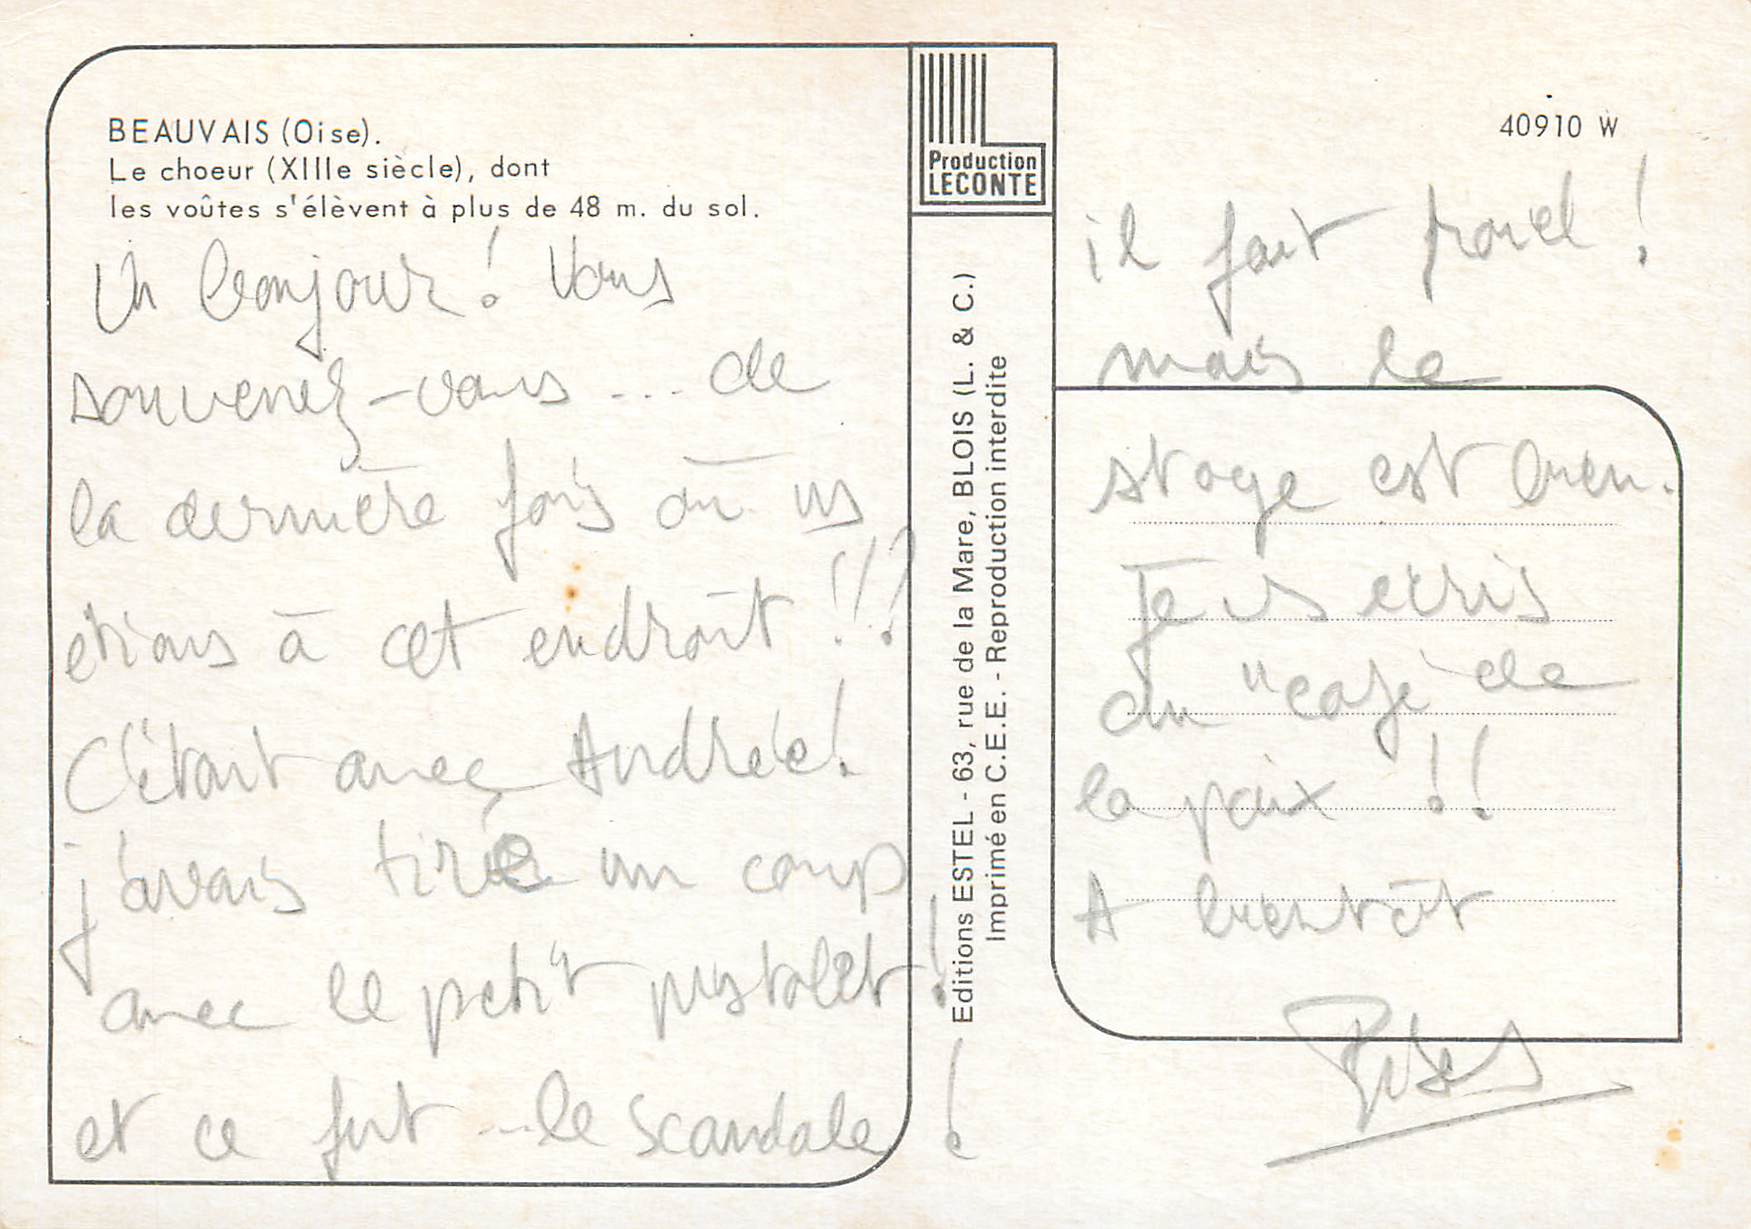 BEAUVAIS (Oise).
Le choeur (XIIIe siècle), dont
les voûtes s'élèvent à plus de 48 m. du sol.
Un bonjour ! Vous
souvenez-vous ... de
la dernière fois où ns
étions à cet endroit !!?
C'était avec Andrée !
j'avais tiré un coup
avec le petit pistolet !
et ce fut ... le scandale !
Production
LECONTE
Editions ESTEL - 63, rue de la Mare, BLOIS (L. & C.)
Imprimé en C.E.E. - Reproduction interdite
40910 W
il fait froid !
mais le
stage est bien.
Je vs écris
du "café de
la paix !!
A bientôt